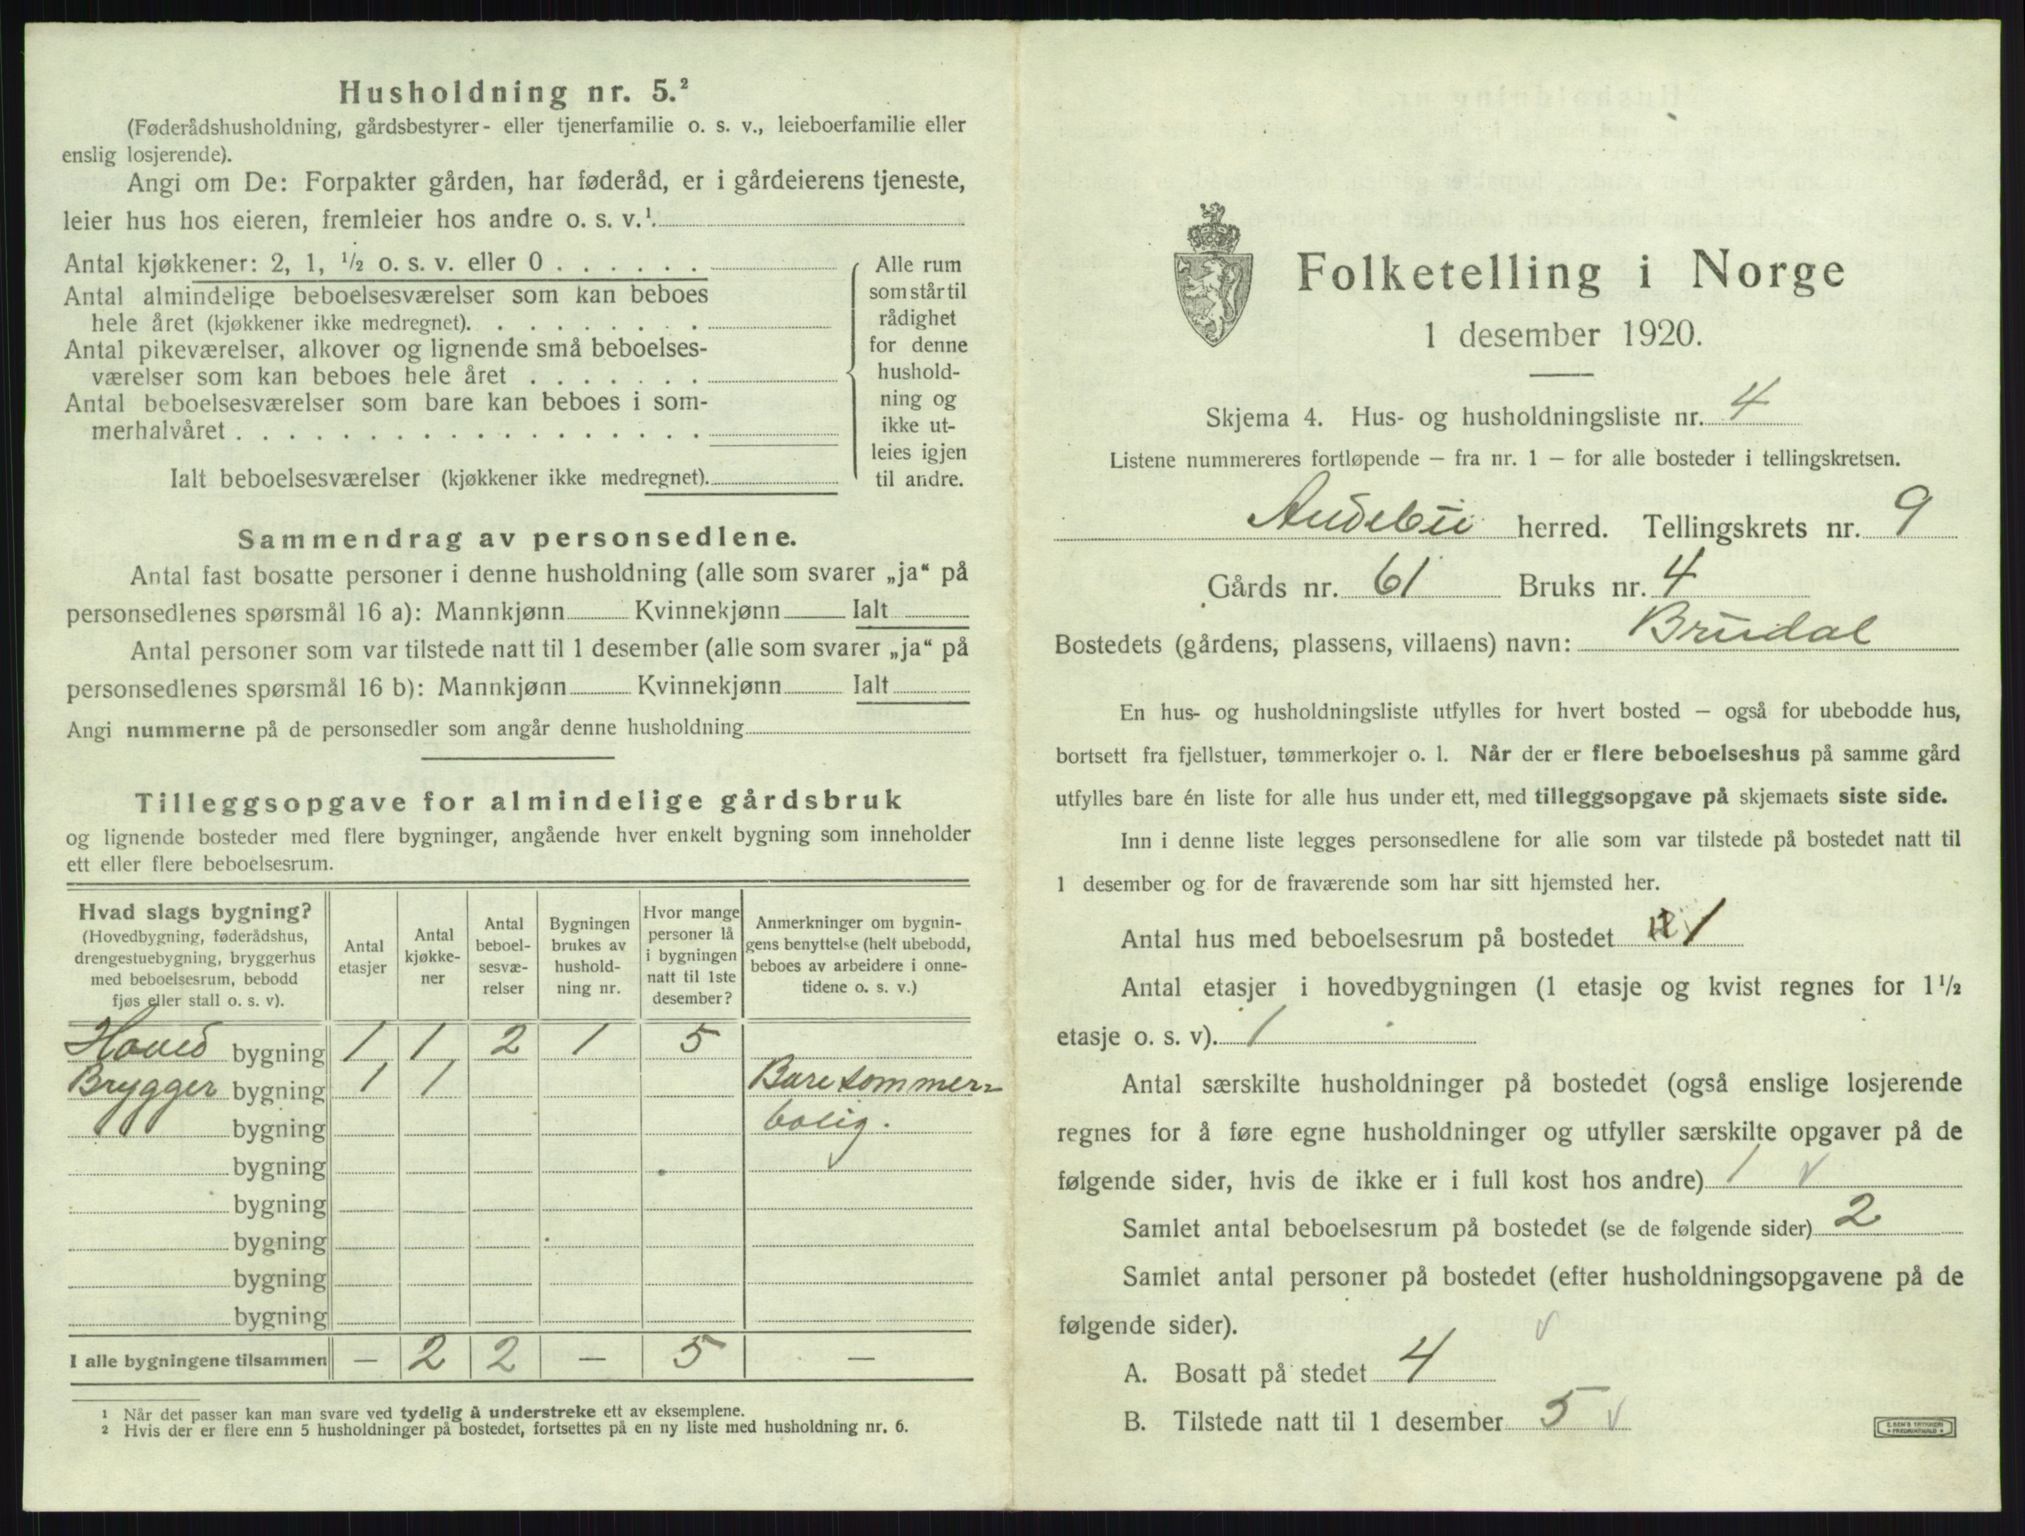 Husholdning nr. 5.²
(Føderådshusholdning, gårdsbestyrer- eller tjenerfamilie o. s. v., leieboerfamilie eller
enslig losjerende).
Angi om De: Forpakter gården, har føderåd, er i gårdeierens tjeneste,
leier hus hos eieren, fremleier hos andre o. s. v.¹
Antal kjøkkener: 2, 1, ½ o. s. v. eller 0 . . . . . .
Antal almindelige beboelsesværelser som kan beboes
hele året (kjøkkener ikke medregnet). . . . . . . . .
Antal pikeværelser, alkover og lignende små beboelses-
værelser som kan beboes hele året . . . . . . .
Antal beboelsesværelser som bare kan beboes i som-
merhalvåret . . . . . . . . . . . . . . . . . .
Ialt beboelsesværelser (kjøkkener ikke medregnet).
Alle rum
som står til
rådighet
for denne
hushold-
ning og
ikke ut-
leies igjen
til andre.
Sammendrag av personsedlene.
Antal fast bosatte personer i denne husholdning (alle som svarer „ja“ på
personsedlenes spørsmål 16 a): Mannkjønn Kvinnekjønn Ialt
Antal personer som var tilstede natt til 1 desember (alle som svarer „ja“ på
personsedlenes spørsmål 16 b): Mannkjønn Kvinnekjønn Ialt
Angi nummerne på de personsedler som angår denne husholdning
Tilleggsopgave for almindelige gårdsbruk
og lignende bosteder med flere bygninger, angående hver enkelt bygning som inneholder
ett eller flere beboelsesrum.
Hvad slags bygning?
(Hovedbygning, føderådshus,
drengestuebygning, bryggerhus
med beboelsesrum, bebodd
fjøs eller stall o. s. v).
Antal
etasjer
Antal
kjøkke-
ner
Antal
beboel-
sesvæ-
relser
Bygningen
brukes av
hushold-
ning nr.
Hvor mange
personer lå
i bygningen
natt til 1ste
desember?
Anmerkninger om bygnin-
gens benyttelse (helt ubebodd,
beboes av arbeidere i onne-
tidene o. s. v.)
Hoved bygning 1 1 2 1 5
Brygger bygning 1 1 Bare sommer=
bygning bolig.
bygning
bygning
bygning
bygning
bygning
I alle bygningene tilsammen — 2 2 — 5 —
¹ Når det passer kan man svare ved tydelig å understreke ett av eksemplene.
² Hvis der er flere enn 5 husholdninger på bostedet, fortsettes på en ny liste med husholdning nr. 6.
Folketelling i Norge
1 desember 1920.
Skjema 4. Hus- og husholdningsliste nr. 4
Listene nummereres fortløpende — fra nr. 1 — for alle bosteder i tellingskretsen.
Andebu herred. Tellingskrets nr. 9
Gårds nr. 61 Bruks nr. 4
Bostedets (gårdens, plassens, villaens) navn: Brudal
En hus- og husholdningsliste utfylles for hvert bosted — også for ubebodde hus,
bortsett fra fjellstuer, tømmerkojer o. l. Når der er flere beboelseshus på samme gård
utfylles bare én liste for alle hus under ett, med tilleggsopgave på skjemaets siste side.
Inn i denne liste legges personsedlene for alle som var tilstede på bostedet natt til
1 desember og for de fraværende som har sitt hjemsted her.
Antal hus med beboelsesrum på bostedet 1
Antal etasjer i hovedbygningen (1 etasje og kvist regnes for 1½
etasje o. s. v). 1
Antal særskilte husholdninger på bostedet (også enslige losjerende
regnes for å føre egne husholdninger og utfyller særskilte opgaver på de
følgende sider, hvis de ikke er i full kost hos andre) 1 v
Samlet antal beboelsesrum på bostedet (se de følgende sider) 2
Samlet antal personer på bostedet (efter husholdningsopgavene på de
følgende sider). v
A. Bosatt på stedet 4
B. Tilstede natt til 1 desember 5 v